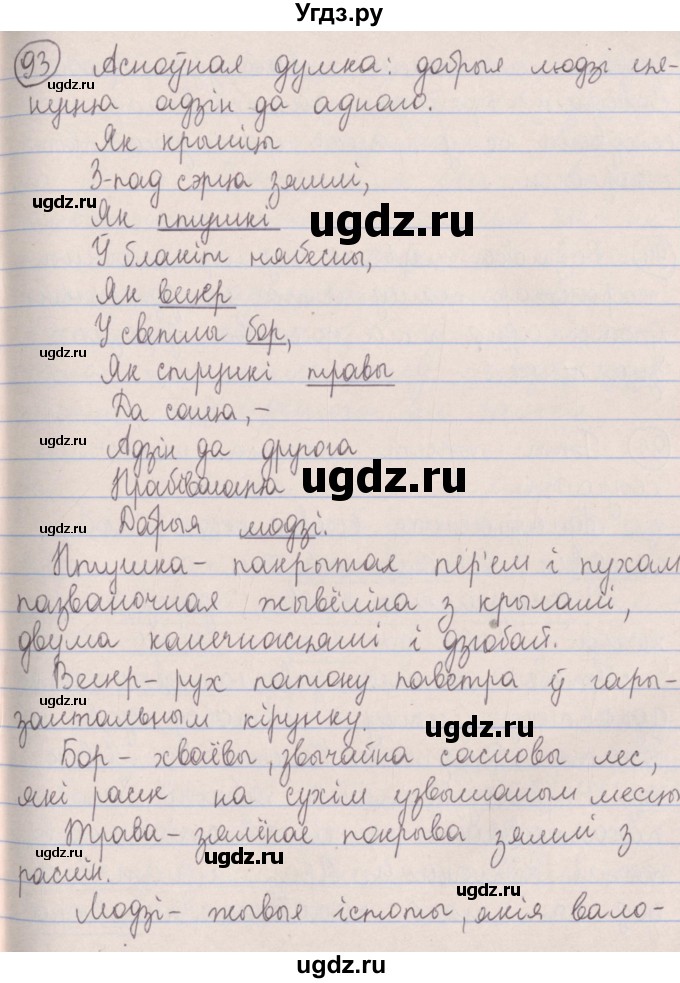 Угдз.ру
93 Асноўная думка: добрыя людзі ця-
нуцца адзін да аднаго.
Як крыніцы
З-пад сэрца зямлі,
Як птушкі
Ў блакіт нябесны,
Як вецер
У светлы бор,
Як стрункі травы
Да сонца,–
Адзін да другога
Прабіваюцца
Добрыя людзі.
Птушка – пакрытая пер'ем і пухам
пазваночная жывёліна з крыламі,
двума канечнасцямі і дзюбай.
Вецер – рух патоку паветра ў гары-
зантальным кірунку.
Бор – хваёвы, звычайна сасновы лес,
які расце на сухім узвышаным месцы
Трава – зялёнае покрыва зямлі з
раслін.
Людзі – жывыя істоты, якія вало-
ugdz.ru
ugdz.ru
ugdz.ru
ugdz.ru
ugdz.ru
ugdz.ru
ugdz.ru
ugdz.ru
ugdz.ru
ugdz.ru
ugdz.ru
ugdz.ru
ugdz.ru
ugdz.ru